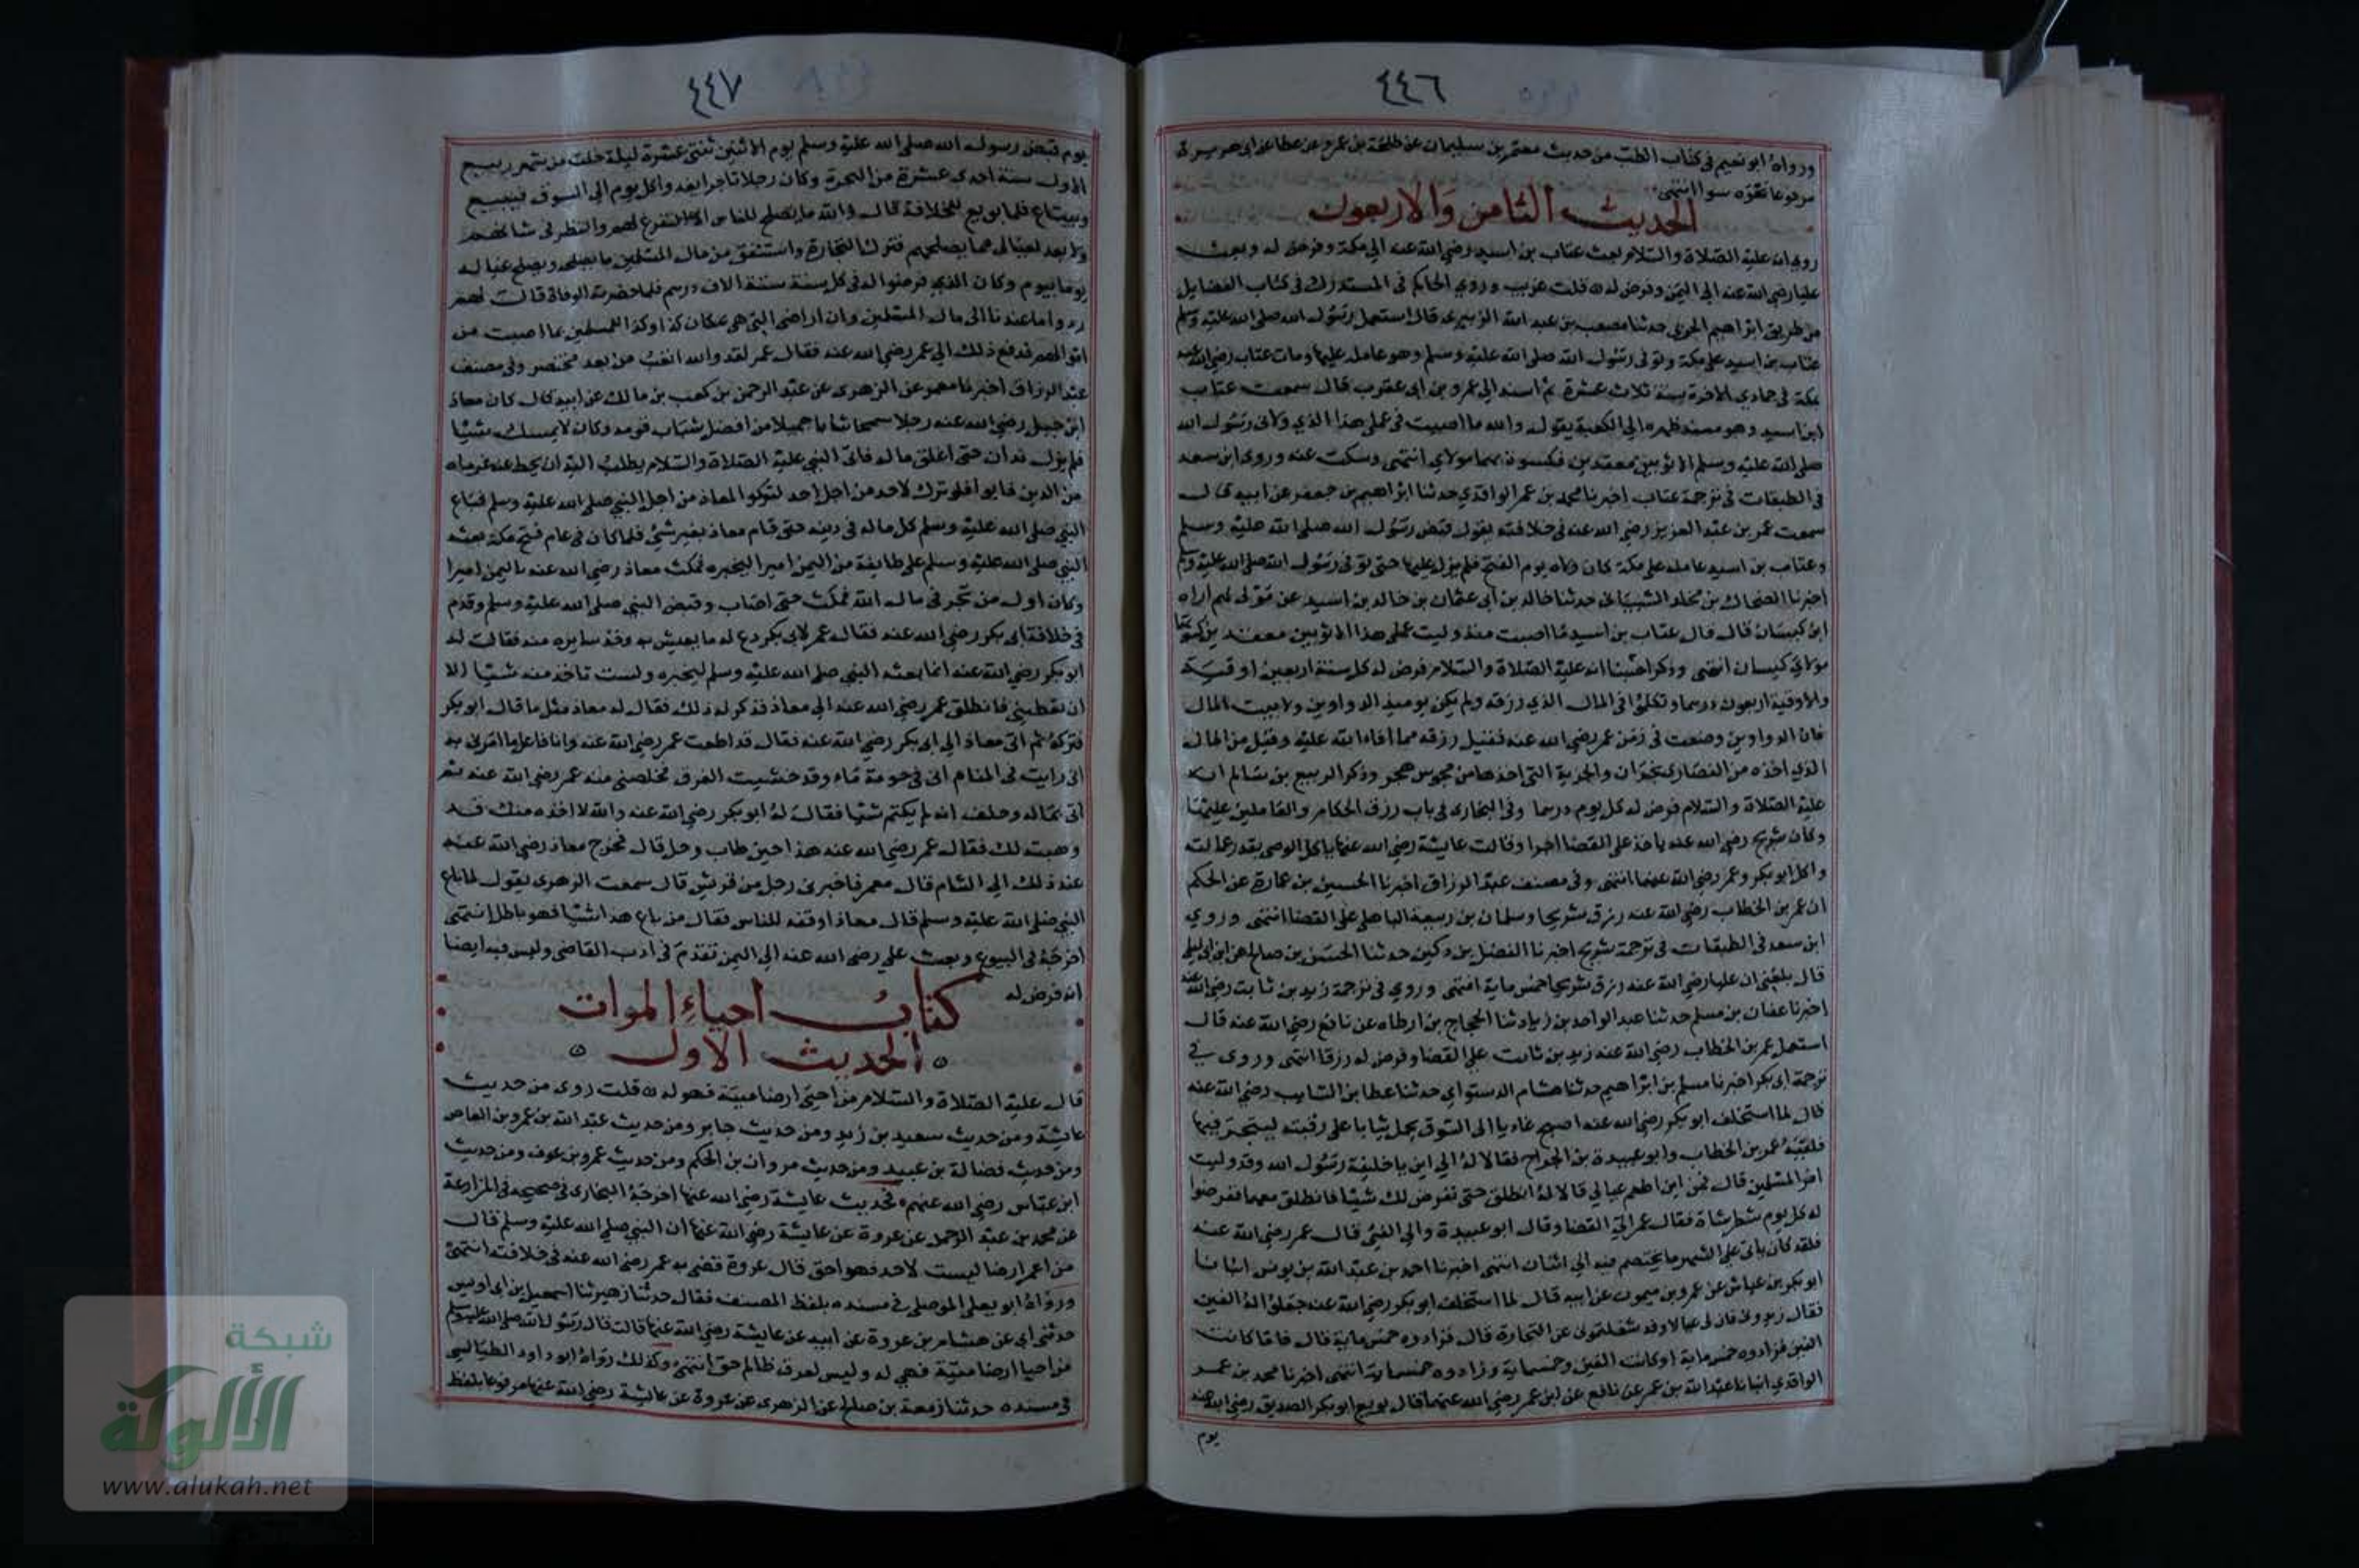 ٤٤٦
ورواه ابو نعيم في كتاب الطب من حديث معتمر بن سليمان عن طلحة بن عمرو عن عطا عن ابي هريرة
مرفوعا نحوه سوا انتهى
الحديث الثامن والاربعون
روي انه عليه الصلاة والسلام بعث عتاب بن اسيد رضي الله عنه الي مكة وفرض له وبعث
عليا رضي الله عنه الي اليمن وفرض له قلت غريب وروي الحاكم في المستدرك في كتاب الفضايل
من طريق ابراهيم الحربي حدثنا مصعب بن عبد الله الزبيري قال استعمل رسول الله صلى الله عليه وسلم
عتاب بن اسيد على مكة وتوفي رسول الله صلى الله عليه وسلم وهو عامله عليها ومات عتاب رضي الله عنه
بمكة في جمادي الاخرة سنة ثلاث عشرة ثم اسند الي عمرو بن ابي عقرب قال سمعت عتاب
ابن اسيد وهو مسند ظهره الي الكعبة يقول والله ما اصبت في عملي هذا الذي ولاني رسول الله
صلى الله عليه وسلم الا ثوبين معقدين فكسوتهما مولاي انتهى وسكت عنه وروى ابن سعد
في الطبقات في ترجمة عتاب اخبرنا محمد بن عمر الواقدي حدثنا ابراهيم بن جعفر عن ابيه قال
سمعت عمر بن عبد العزيز رضي الله عنه في خلافته يقول قبض رسول الله صلى الله عليه وسلم
وعتاب بن اسيد عامله على مكة كان ولاه يوم الفتح فلم يزل عليها حتى توفي رسول الله صلى الله عليه وسلم
اخبرنا الضحاك بن مخلد الشيباني حدثنا خالد بن ابي عثمان بن خالد بن اسيد عن مولى لهم اراه
ابن كيسان قال قال عتاب بن اسيد ما اصبت منذ وليت عملي هذا الا ثوبين معقدين كسوتهما
مولاي كيسان انتهى وذكر اصحابنا انه عليه الصلاة والسلام فرض له كل سنة اربعين اوقية
والاوقية اربعون درهما وتكلموا في المال الذي رزقه ولم يكن يوميذ الدواوين ولا بيت المال
فان الدواوين وضعت في زمن عمر رضي الله عنه فقيل رزقه مما افاء الله عليه وقيل من المال
الذي اخذه من النصارى بنجران والجزية التي اخذها من مجوس هجر وذكر ابو الربيع بن سالم انه
عليه الصلاة والسلام فرض له كل يوم درهما وفي البخاري في باب رزق الحكام والعاملين عليها
وكان شريح رضي الله عنه ياخذ على القضا اجرا وقالت عايشة رضي الله عنها ياكل الوصي بقدر عمالته
واكل ابو بكر وعمر رضي الله عنهما انتهى وفي مصنف عبد الرزاق اخبرنا الحسن بن عمارة عن الحكم
ان عمر بن الخطاب رضي الله عنه رزق شريحا وسلمان بن ربيعة الباهلي على القضا انتهى وروي
ابن سعد في الطبقات في ترجمة شريح اخبرنا الفضل بن دكين حدثنا الحسن بن صالح عن ابن ابي ليلى
قال بلغني ان عليا رضي الله عنه رزق شريحا خمس ماية انتهى وروي في ترجمة زيد بن ثابت رضي الله عنه
اخبرنا عفان بن مسلم حدثنا عبد الواحد بن زياد ثنا الحجاج بن ارطاه عن نافع رضي الله عنه قال
استعمل عمر بن الخطاب رضي الله عنه زيد بن ثابت على القضا وفرض له رزقا انتهى وروى في
ترجمة ابي بكر اخبرنا مسلم بن ابراهيم حدثنا هشام الدستواي حدثنا عطا بن السايب رضي الله عنه
قال لما استخلف ابو بكر رضي الله عنه اصبح غاديا الى السوق يحمل ثيابا على رقبته ليتجر فيها
فلقيه عمر بن الخطاب وابو عبيدة بن الجراح فقالا له الي اين يا خليفة رسول الله وقد وليت
امر المسلمين قال فمن اين اطعم عيالي قالا له انطلق حتى نفرض لك شيئا فانطلق معهما ففرضوا
له كل يوم شطر شاة فقال عمر الي القضا وقال ابو عبيدة والي الفئ قال عمر رضي الله عنه
فلقد كان ياتي علي الشهر ما يختصم فيه الي اثنان انتهى اخبرنا احمد بن عبد الله بن يونس انبانا
ابو بكر بن عياش عن عمرو بن ميمون عن ابيه قال لما استخلف ابو بكر رضي الله عنه جعلوا له الفين
فقال زيدوني فان لي عيالا وقد شغلتموني عن التجارة قال فزادوه خمس ماية قال فاما كانت
الفين فزادوه خمس ماية او كانت الفين وخمسماية وزادوه خمسماية انتهى اخبرنا محمد بن عمر
الواقدي انبانا عبد الله بن عمر عن نافع عن ابن عمر رضي الله عنهما قال بويع ابو بكر الصديق رضي الله عنه
يوم
٤٤٧
يوم قبض رسول الله صلى الله عليه وسلم يوم الاثنين ثنتي عشرة ليلة خلت من شهر ربيع
الاول سنة احدى عشرة من الهجرة وكان رجلا تاجرا يغدوا كل يوم الي السوق فيبيع
ويبتاع فلما بويع للخلافة قال والله ما يصلح للناس الا التفرغ لهم والنظر في شانهم
ولا بد لعيالي مما يصلحهم فترك التجارة واستنفق من مال المسلمين ما يصلحه ويصلح عياله
يوما بيوم وكان الذي فرضوا له في كل سنة ستة الاف درهم فلما حضرته الوفاة قال لهم
ردوا ما عندنا الى مال المسلمين وان اراضى التي هي بمكان كذا وكذا للمسلمين بما اصبت من
اموالهم فدفع ذلك الي عمر رضي الله عنه فقال عمر لقد والله اتعب من بعده مختصر وفي مصنف
عبد الرزاق اخبرنا معمر عن الزهري عن عبد الرحمن بن كعب بن مالك عن ابيه قال كان معاذ
ابن جبل رضي الله عنه رجلا سمحا شابا جميلا من افضل شباب قومه وكان لا يمسك شيئا
فلم يزل يدان حتى اغلق ماله فاتى النبي عليه الصلاة والسلام يطلب اليه ان يحط عنه غرماه
من الدين فابوا فلو ترك لاحد من اجل احد لتركوا لمعاذ من اجل النبي صلى الله عليه وسلم فباع
النبي صلى الله عليه وسلم كل ماله في دينه حتى قام معاذ بغير شئ فلما كان في عام فتح مكة بعثه
النبي صلى الله عليه وسلم على طايفة من اليمن اميرا ليجبره فمكث معاذ رضي الله عنه باليمن اميرا
وكان اول من تجر في مال الله فمكث حتى اصاب وقبض النبي صلى الله عليه وسلم وقدم
في خلافة ابي بكر رضي الله عنه فقال عمر لابي بكر دع له ما يعيش به وخذ سايره منه فقال له
ابو بكر رضي الله عنه انما بعثه النبي صلى الله عليه وسلم ليجبره ولست تاخذ منه شيئا الا
ان يعطيني فانطلق عمر رضي الله عنه الي معاذ فذكر له ذلك فقال له معاذ مثل ما قال ابو بكر
فتركه ثم اتى معاذ الي ابي بكر رضي الله عنه فقال قد اطعت عمر رضي الله عنه وانا فاعل ما امرني به
اني رايت في المنام اني في حومة ماء وقد خشيت الغرق فخلصني منه عمر رضي الله عنه ثم
اتى بماله وحلف انه لم يكتم شيئا فقال له ابو بكر رضي الله عنه والله لا اخذه منك قد
وهبته لك فقال عمر رضي الله عنه هذا حين طاب وحل قال فخرج معاذ رضي الله عنه
عند ذلك الي الشام قال معمر فاخبرني رجل من قريش قال سمعت الزهري يقول لما باع
النبي صلى الله عليه وسلم مال معاذ اوقفه للناس فقال من باع هذا شيئا فهو باطل انتهى
اخرجه في البيوع وبعث علي رضي الله عنه الي اليمن تقدم في ادب القاضي وليس فيه ايضا
انه فرض له
كتاب احياء الموات
الحديث الاول
قال عليه الصلاة والسلام من احيى ارضا ميتة فهو له قلت روى من حديث
عايشة ومن حديث سعيد بن زيد ومن حديث جابر ومن حديث عبد الله بن عمرو بن العاص
ومن حديث فضالة بن عبيد ومن حديث مروان بن الحكم ومن حديث عمرو بن عوف ومن حديث
ابن عباس رضي الله عنهم فحديث عايشة رضي الله عنها اخرجه البخاري في صحيحه في المزارعة
عن محمد بن عبد الرحمن عن عروة عن عايشة رضي الله عنها ان النبي صلى الله عليه وسلم قال
من اعمر ارضا ليست لاحد فهو احق قال عروة قضى به عمر رضي الله عنه في خلافته انتهى
ورواه ابو يعلى الموصلي في مسنده بلفظ المصنف فقال حدثنا زهير ثنا اسمعيل بن ابي اويس
حدثني ابي عن هشام بن عروة عن ابيه عن عايشة رضي الله عنها قالت قال رسول الله صلى الله عليه وسلم
من احيا ارضا ميتة فهي له وليس لعرق ظالم حق انتهى وكذلك رواه ابو داود الطيالسي
في مسنده حدثنا زمعة بن صالح عن الزهري عن عروة عن عايشة رضي الله عنها مرفوعا بلفظ
شبكة
الألوكة
www.alukah.net